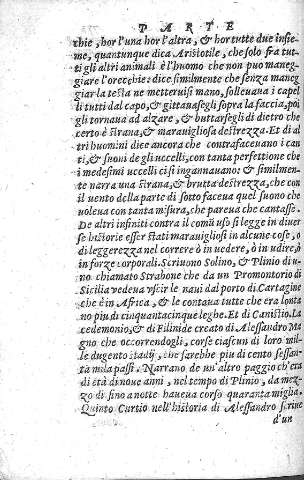 PARTE
chie, hor l'una hor l'altra, & hor tutte due insie-
me, quantunque dica Aristotile, che solo fra tut-
ti gli altri animali è l'huomo che non puo maneg-
giare l'orecchie: dice similmente che senza maneg
giar la testa ne mettervi mano, sollevava i capel
li tutti dal capo, & gittavasegli sopra la faccia, poi
gli tornava ad alzare, & buttarsegli di dietro che
certo è strana, & maravigliosa destrezza. Et di al
tri huomini dice ancora che contrafacevano i can
ti, & suoni de gli uccelli, con tanta perfettione che
i medesimi uccelli ci s'ingannavano: & similmen-
te narra una strana, & brutta destrezza, che con
il vento della parte di sotto faceva quel suono che
voleva con tanta misura, che pareva che cantasse.
De altri infiniti contra il comū uso si legge in diver
se historie esser stati maravigliosi in alcune cose, o
di leggerezza nel correre ò in vedere, ò in udire, ò
in forze corporali. Scrivono Solino, & Plinio di u-
no chiamato Strabone che da un Promontorio di
Sicilia vedeva uscir le navi dal porto di Cartagine
che è in Africa, & le contava tutte che era lonta
no piu di cinquantacinque leghe. Et di Canistio. La
cedemonio, & di Filinide creato di Alessandro Ma
gno che occorrendogli, corse ciascun di loro mil-
le dugento stadij, che sarebbe piu di cento sessan-
ta mila passi. Narrano de un'altro paggio ch'era
di età di nove anni, nel tempo di Plinio, da mez-
zo dì sino a notte haveva corso quaranta miglia.
Quinto Curtio nell'historia di Alessandro scrive
d'un